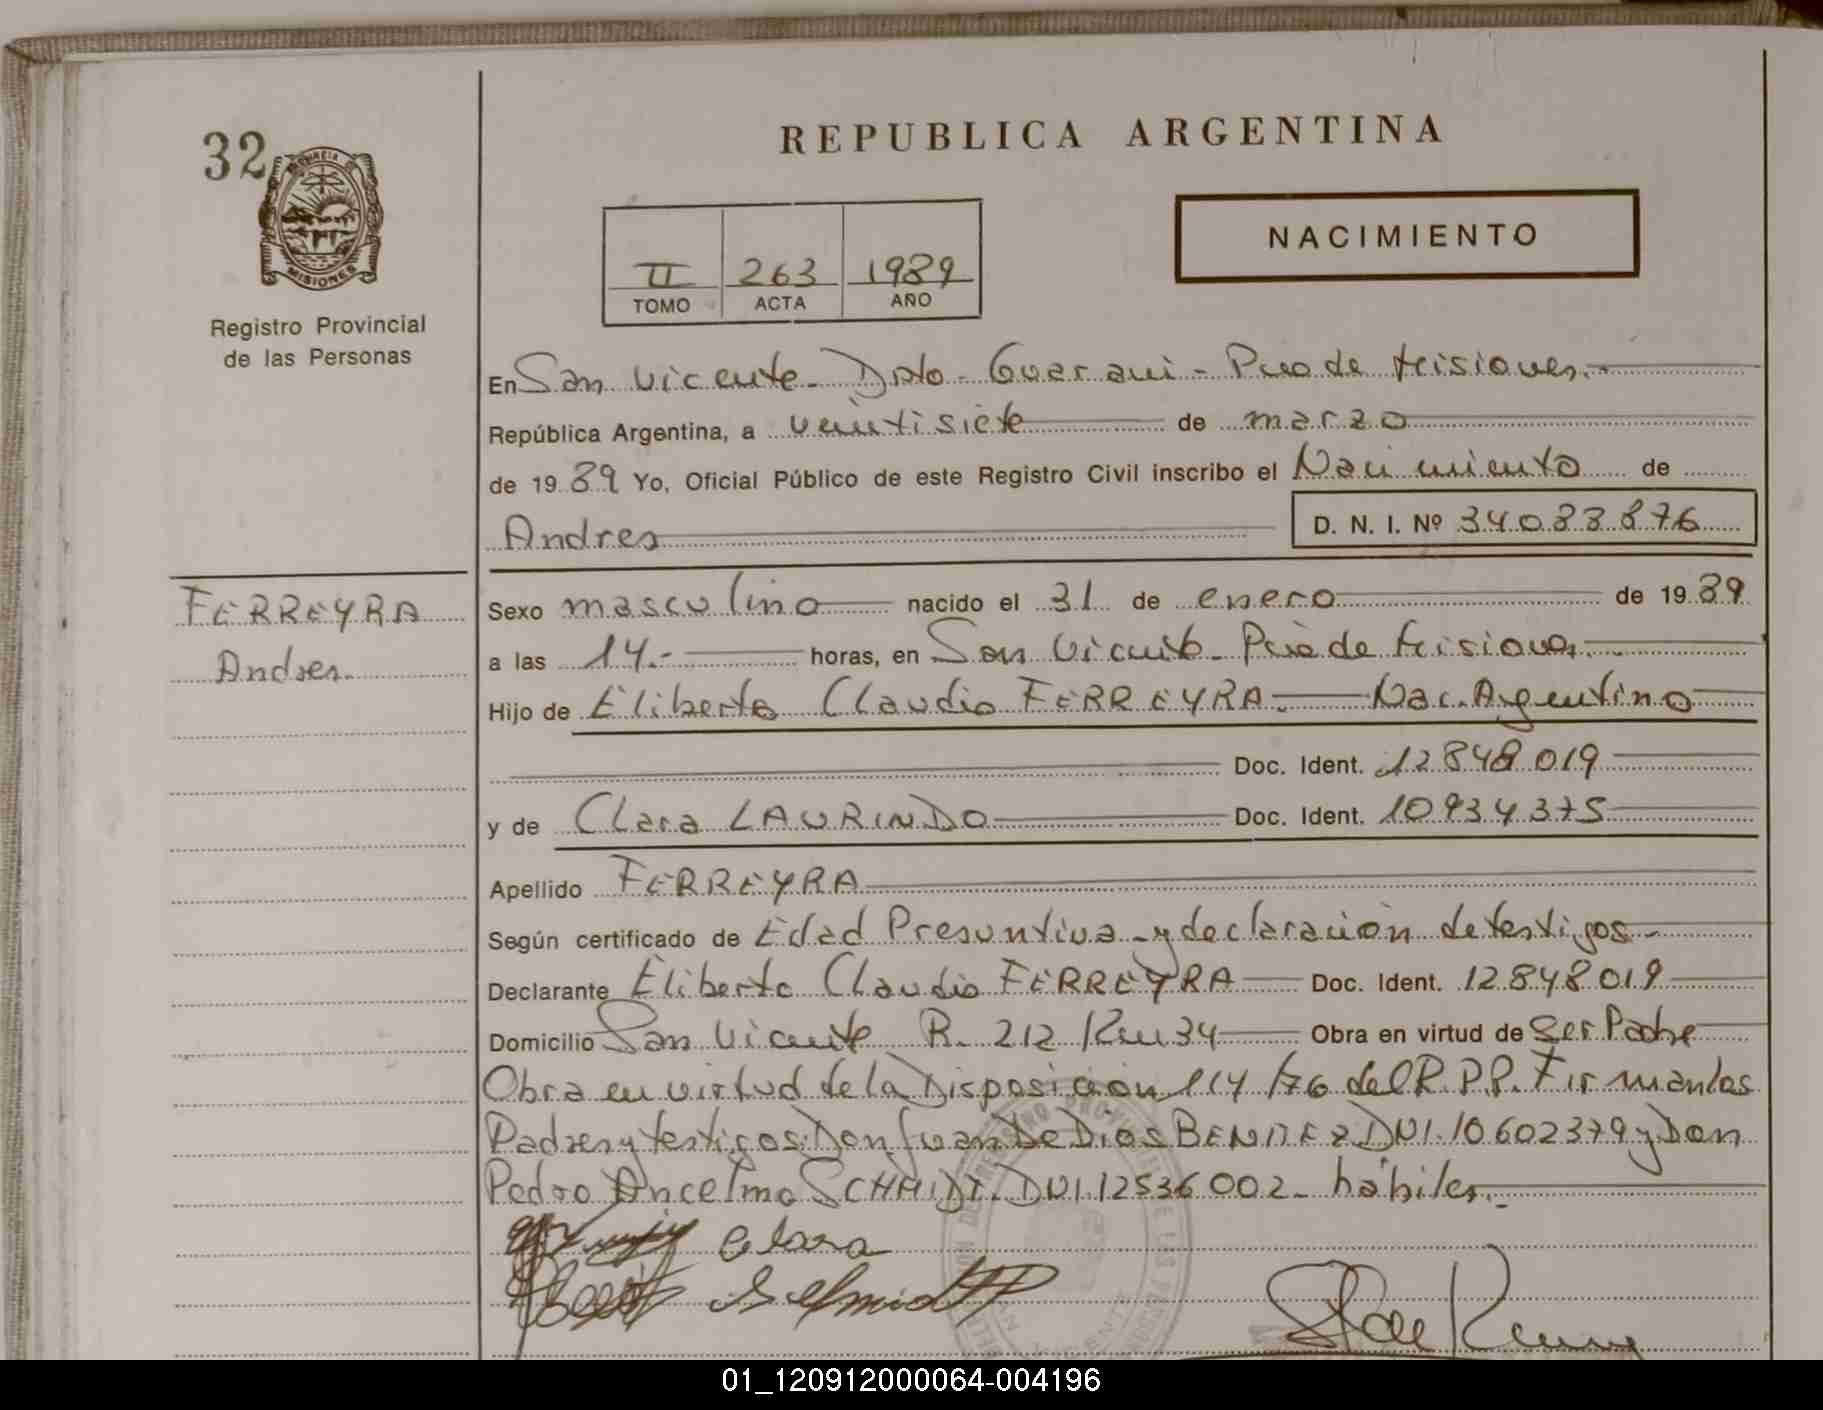 32
PROVINCIA DE
MISIONES
Registro Provincial
de las Personas
REPUBLICA ARGENTINA
NACIMIENTO
II 263 1989
TOMO ACTA AÑO
En San Vicente - Dpto - Guarani - Pcia de Misiones.
República Argentina, a veintisiete de marzo
de 1989 Yo, Oficial Público de este Registro Civil inscribo el Nacimiento de
Andres D. N. I. Nº 34083876
FERREYRA
Andres.
Sexo masculino nacido el 31 de enero de 1989
a las 14.- horas, en San Vicente - Pcia de Misiones.
Hijo de Eliberto Claudio FERREYRA. Nac. Argentino
Doc. Ident. 12848019
y de Clara LAURINDO Doc. Ident. 10934375
Apellido FERREYRA
Según certificado de Edad Presuntiva - y declaración de testigos -
Declarante Eliberto Claudio FERREYRA Doc. Ident. 12848019
Domicilio San Vicente R. 212 Km 34 Obra en virtud de Ser Padre
Obra en virtud de la Disposición 114/76 del R.P.P. Firman los
Padres y testigos: Don Juan De Dios BENITEZ DNI. 10602379 y Don
Pedro Ancelmo SCHMIDT. DNI. 12536002 - hábiles.
Clara
Schmidt
01_120912000064-004196